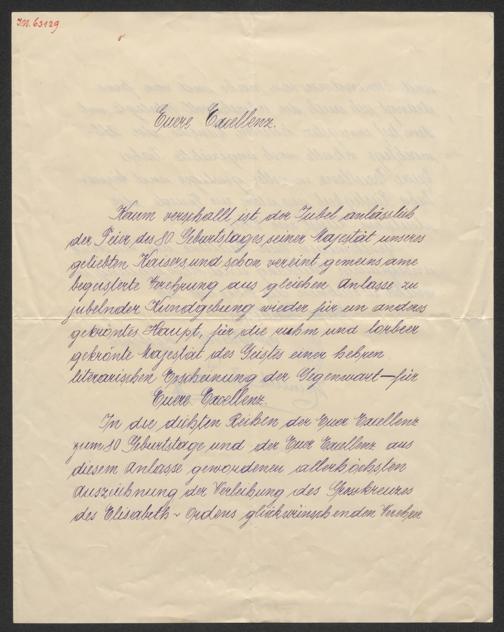 IN. 63129
Euere Exellenz.
Kaum verschallt ist der Jubel anlässlich
der Feier des 80 Geburtstages seiner Majestät unseres
geliebten Kaisers, und schon vereint gemeinsame
begeisterte Verehrung aus gleichen Anlasse zu
jubelnder Kundgebung wieder für ein anderes
gekröntes Haupt, für die ruhm und lorbeer
gekrönte Majestät des Geistes einer hehren
literarischen Erscheinung der Gegenwart – für
Euere Excellenz.
In die dichten Reihen der Euer Excellenz
zum 80 Geburtstage und der Euer Exellenz aus
diesem Anlasse gewordenen allerhöchsten
Auszeichnung der Verleihung des
des Elisabeth-Ordens glückwünschenden Verehrer